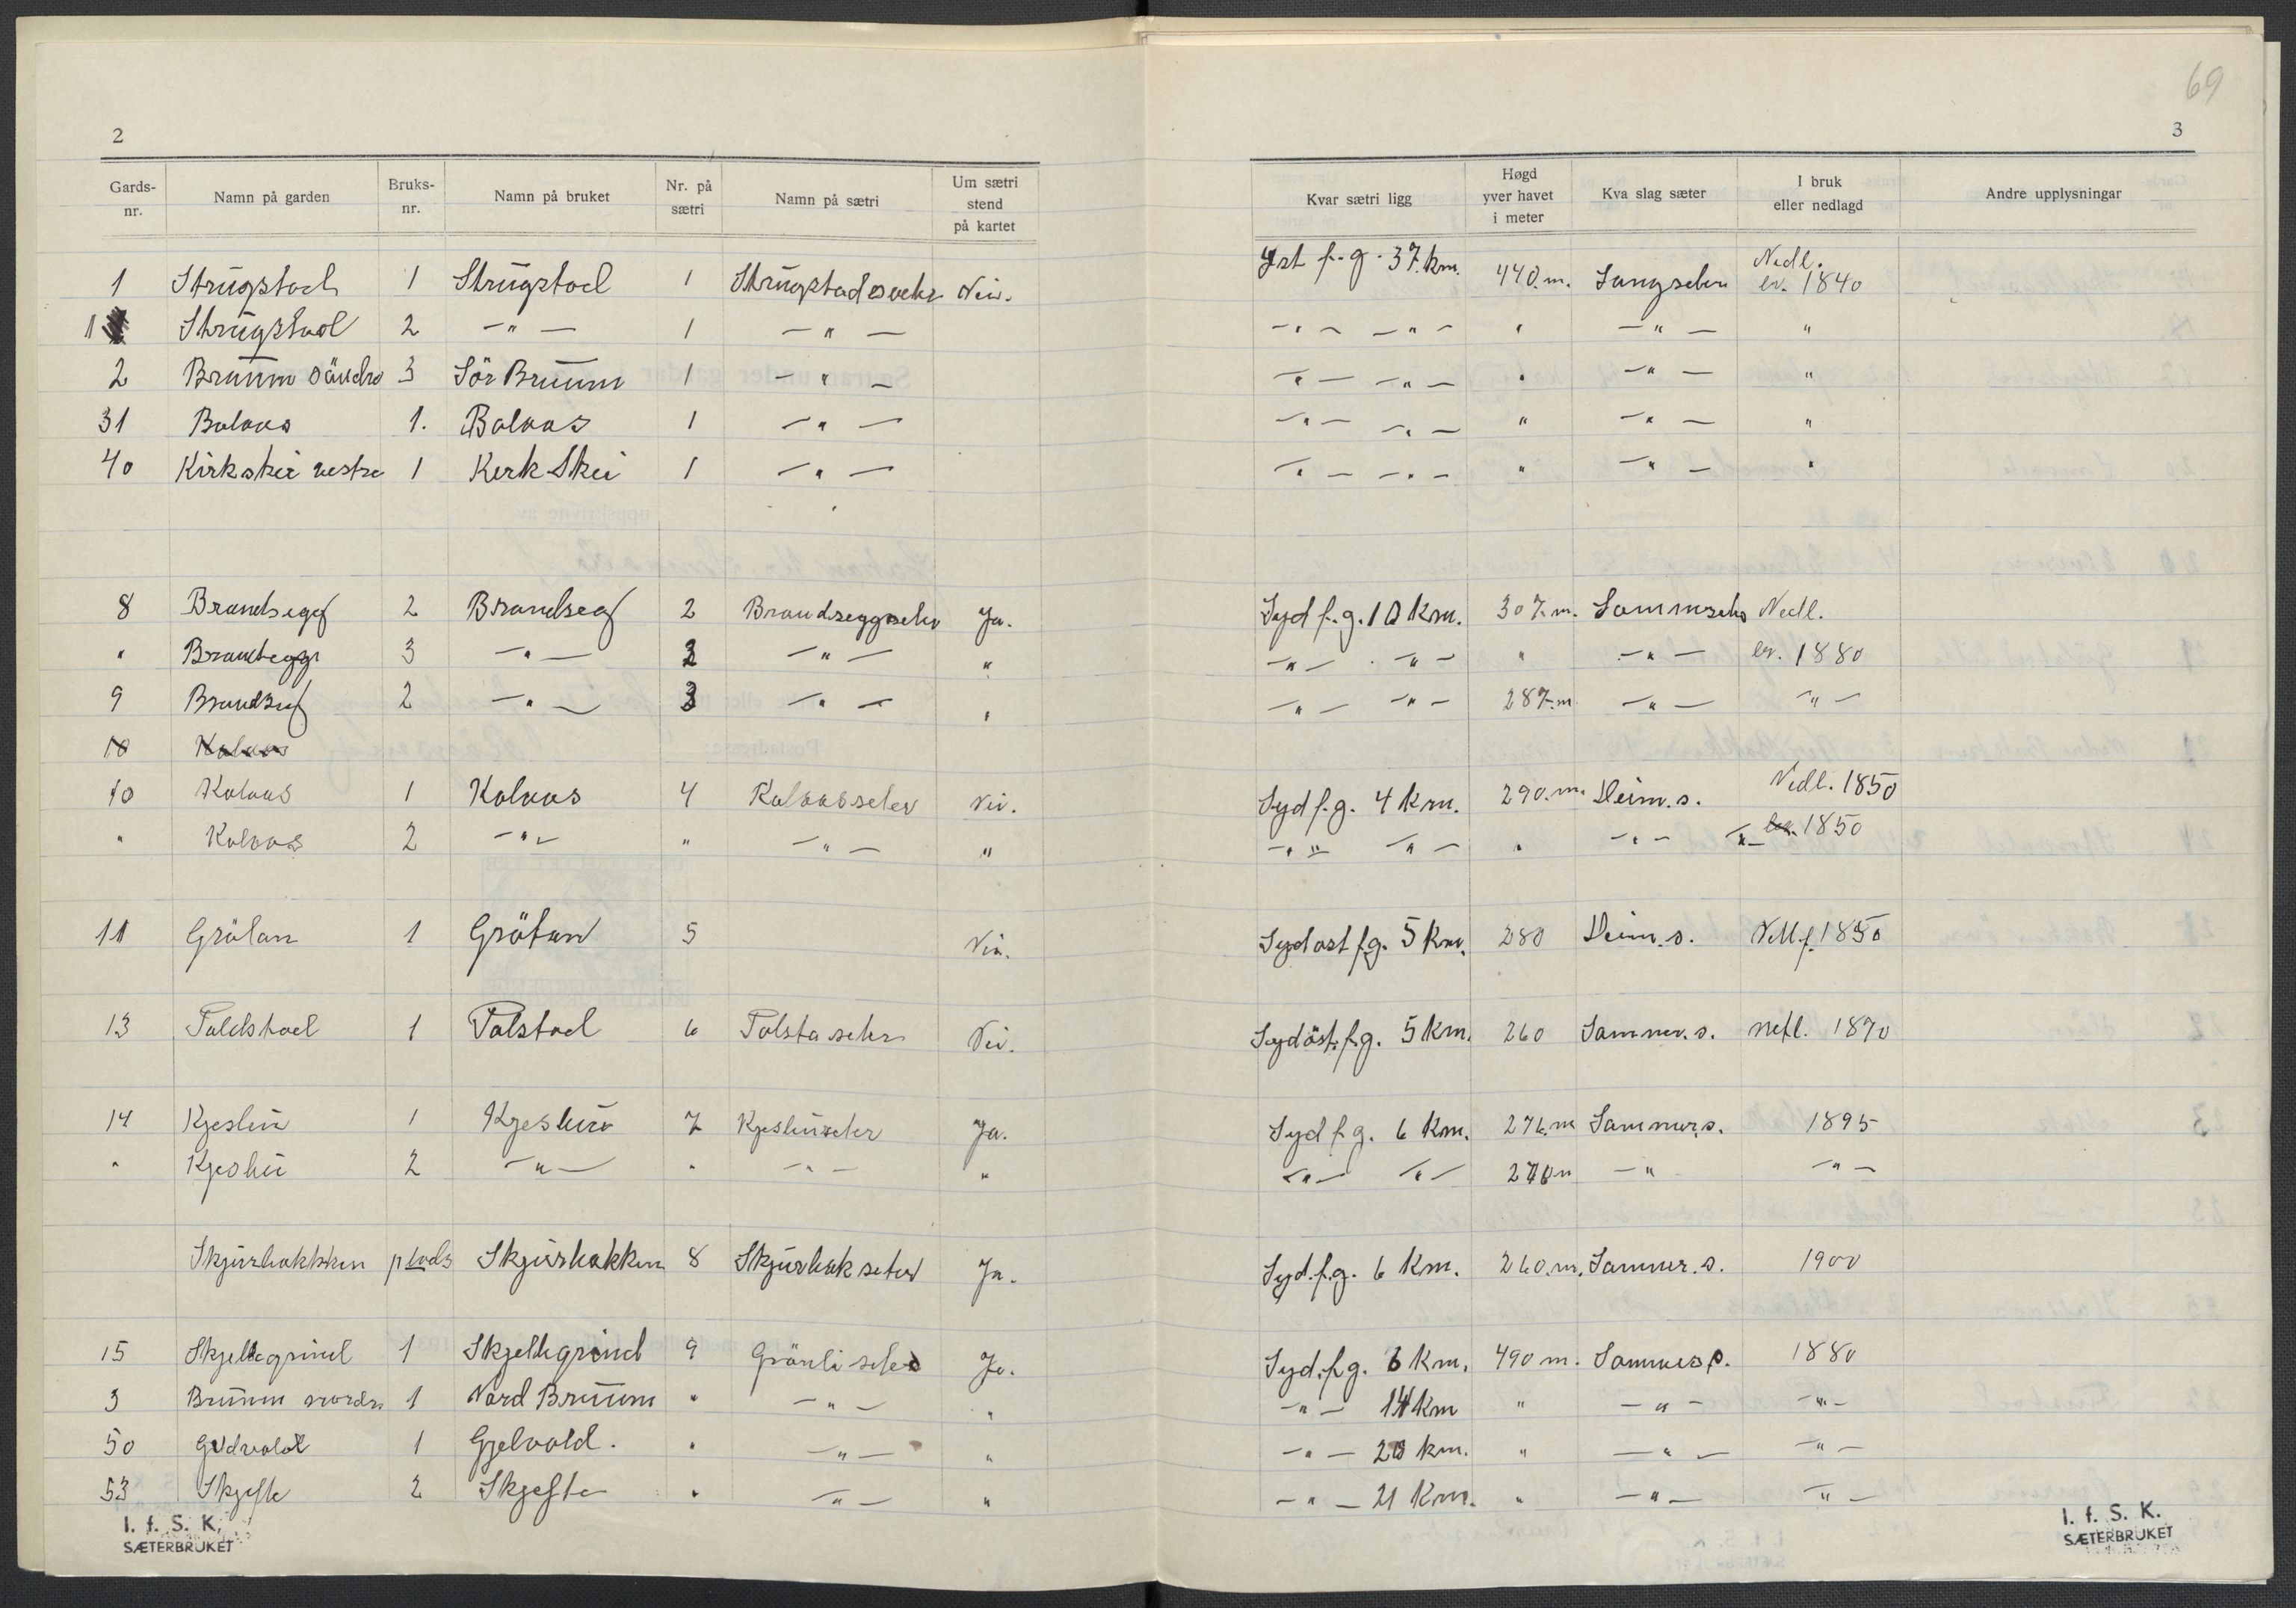 69
2
3
Gards-nr. Namn på garden Bruks-nr. Namn på bruket Nr. på sætri Namn på sætri Um sætri stend på kartet Kvar sætri ligg Høgd yver havet i meter Kva slag sæter I bruk eller nedlagd Andre upplysningar
1 Strugstad 1 Strugstad 1 Strugstadsæter Nei. Yst f.g. 37 km. 440 m. Langseter Nedl. ev. 1840
1 Strugstad 2 -"- 1 -"- -"- -"- " -"- "
2 Bruum söndre 3 Sör Bruum 1 -"- -"- -"- " -"- "
31 Balaas 1. Balaas 1 -"- -"- -"- " -"- "
40 Kirkskei vestre 1 Kerk Skei 1 -"- -"- -"- " -"- "
8 Brandsegg 2 Brandseg 2 Brandseggseter Ja. Syd f.g. 10 km. 307 m. Sommseter Nedl.
" Brandsegg 3 -"- 2 -"- " -"- -"- " -"- ev. 1880
9 Brandseg 2 -"- 3 -"- " -"- -"- 287 m -"- -"-
10 Kalaas
10 Kalaas 1 Kalaas 4 Kalaasseter Nei. Syd f.g. 4 km. 290 m. Heim.s. Nedl. 1850
" Kalaas 2 -"- " -"- " -"- -"- " -"- -"- 1850
11 Grötan 1 Grötan 5 Nei. Sydost f.g. 5 km. 280 Heim.s. 1850
13 Taldstad 1 Talstad 6 Talstaseter Nei. Sydöst f.g. 5 km. 260 Sommer.s. nedl. 1870
14 Kjeslin 1 Kjeslin 7 Kjeslinseter Ja. Syd f.g. 6 km. 276 m Sommer.s. 1895
" Kjeslin 2 -"- " -"- " -"- -"- -" -"-
Skjurbakken plads Skjurbakken 8 Skjurbakseter Ja. Syd.f.g. 6 km. 260 m. Sommer.s. 1900
15 Skjellegrind 1 Skjellegrind 9 Grönliseter Ja. Syd.f.g. 6 km. 490 m. Sommers. 1880
3 Bruum nordre 1 Nord Bruum " -"- " -"- 14 km " -"- -"-
50 Gjelvold 1 Gjelvold. " -"- " -"- 20 km. " -"- -"-
53 Skjefte 2 Skjefte " -"- " -"- 21 km. " -"- -"-
I. f. S. K.
SÆTERBRUKET
I. f. S. K.
SÆTERBRUKET